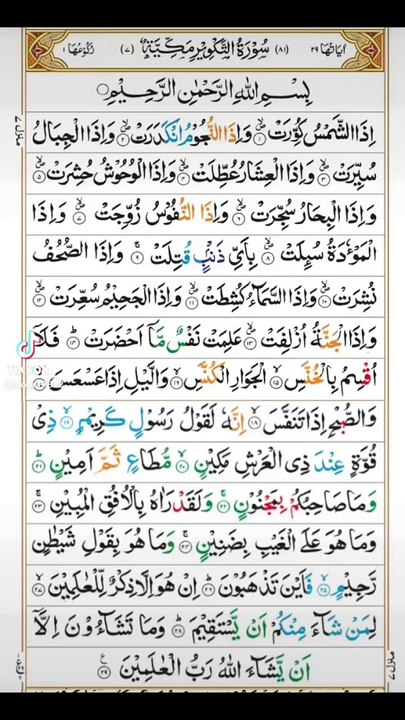 اٰيَاتُهَا ٢٩ (٨١) سُوْرَةُ التَّكْوِيْرِ مَكِّيَّةٌ (٧) رُكُوْعُهَا ١
بِسْمِ اللهِ الرَّحْمٰنِ الرَّحِيْمِ
اِذَا الشَّمْسُ كُوِّرَتْ ۙ۱ وَاِذَا النُّجُوْمُ انْكَدَرَتْ ۙ۲ وَاِذَا الْجِبَالُ
سُيِّرَتْ ۙ۳ وَاِذَا الْعِشَارُ عُطِّلَتْ ۙ۴ وَاِذَا الْوُحُوْشُ حُشِرَتْ ۙ۵
وَاِذَا الْبِحَارُ سُجِّرَتْ ۙ۶ وَاِذَا النُّفُوْسُ زُوِّجَتْ ۙ۷ وَاِذَا
الْمَوْءٗدَةُ سُىِٕلَتْ ۙ۸ بِاَيِّ ذَنْۢبٍ قُتِلَتْ ۚ۹ وَاِذَا الصُّحُفُ
نُشِرَتْ ۙ۱۰ وَاِذَا السَّمَآءُ كُشِطَتْ ۙ۱۱ وَاِذَا الْجَحِيْمُ سُعِّرَتْ ۙ۱۲
وَاِذَا الْجَنَّةُ اُزْلِفَتْ ۙ۱۳ عَلِمَتْ نَفْسٌ مَّاۤ اَحْضَرَتْ ؕ۱۴ فَلَاۤ
اُقْسِمُ بِالْخُنَّسِ ۙ۱۵ الْجَوَارِ الْكُنَّسِ ۙ۱۶ وَالَّيْلِ اِذَا عَسْعَسَ ۙ۱۷
وَالصُّبْحِ اِذَا تَنَفَّسَ ۙ۱۸ اِنَّهٗ لَقَوْلُ رَسُوْلٍ كَرِيْمٍ ۙ۱۹ ذِيْ
قُوَّةٍ عِنْدَ ذِي الْعَرْشِ مَكِيْنٍ ۙ۲۰ مُّطَاعٍ ثَمَّ اَمِيْنٍ ؕ۲۱
وَمَا صَاحِبُكُمْ بِمَجْنُوْنٍ ۚ۲۲ وَلَقَدْ رَاٰهُ بِالْاُفُقِ الْمُبِيْنِ ۚ۲۳
وَمَا هُوَ عَلَى الْغَيْبِ بِضَنِيْنٍ ۚ۲۴ وَمَا هُوَ بِقَوْلِ شَيْطٰنٍ
رَّجِيْمٍ ۙ۲۵ فَاَيْنَ تَذْهَبُوْنَ ؕ۲۶ اِنْ هُوَ اِلَّا ذِكْرٌ لِّلْعٰلَمِيْنَ ۙ۲۷
لِمَنْ شَآءَ مِنْكُمْ اَنْ يَّسْتَقِيْمَ ؕ۲۸ وَمَا تَشَآءُوْنَ اِلَّاۤ
اَنْ يَّشَآءَ اللهُ رَبُّ الْعٰلَمِيْنَ ۲۹